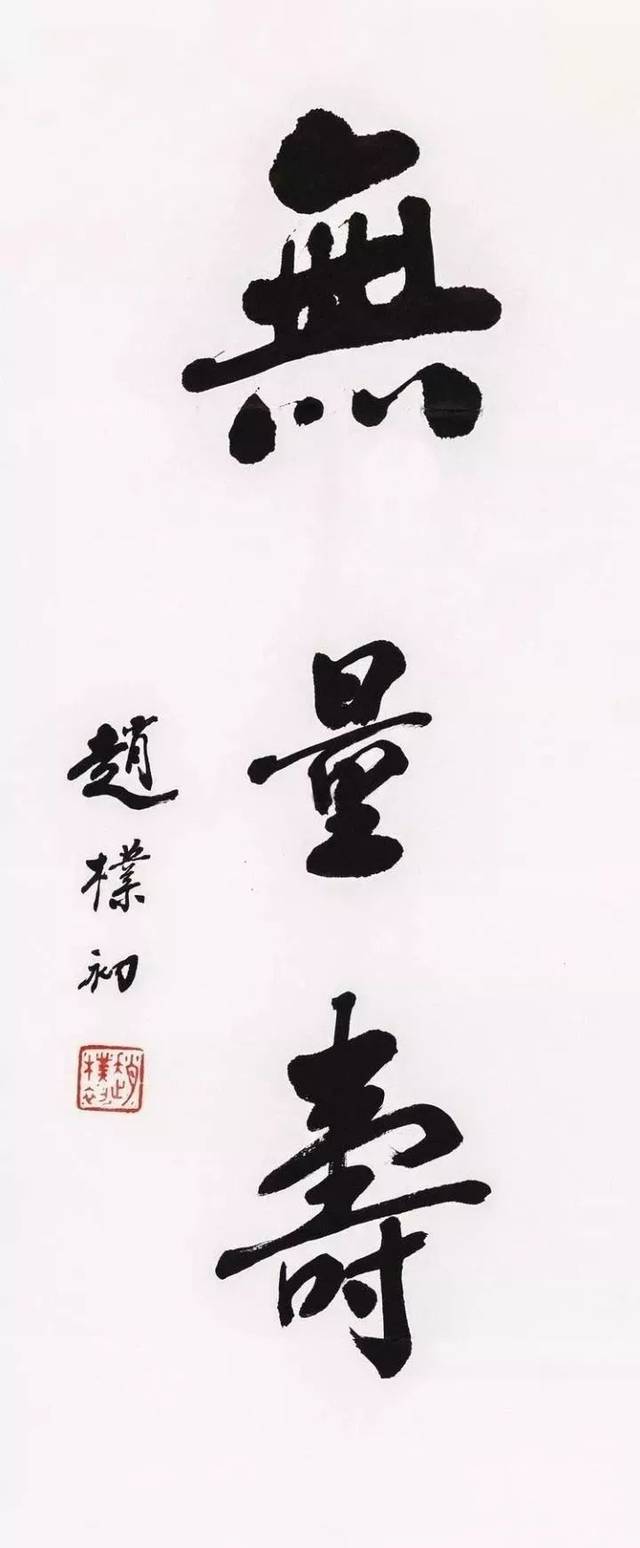 無量壽
趙樸初
趙樸初